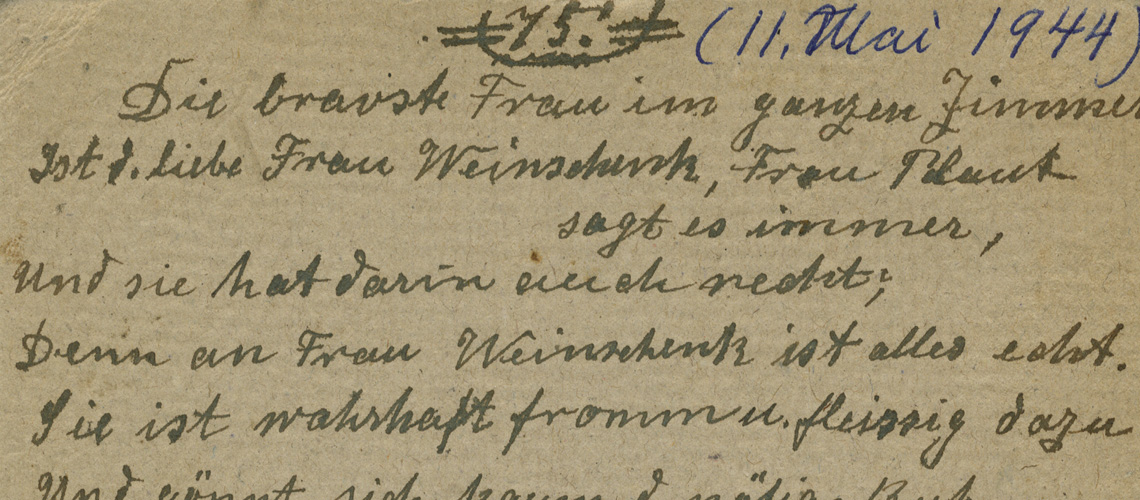 75. (11. Mai 1944)
Die bravste Frau im ganzen Zimmer
Ist d. liebe Frau Weinschenk, Frau Plaut
sagt es immer,
Und sie hat darin auch recht;
Denn an Frau Weinschenk ist alles echt.
Sie ist wahrhaft fromm u. fleissig dazu
Und gönnt sich kaum d. nötige Ruh